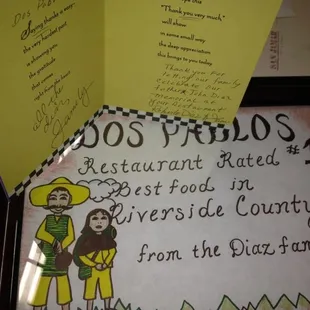 Dos P
Saying thanks is easy:
the very hardest part
is showing you
the gratitude
that comes
right from the heart
"Thank you very much"
will show
in some small way
the deep appreciation
this brings to you today.
Thank you for
letting our family
celebrate our
father John Diaz
memorial at
your restaurant
DOS PABLOS
Restaurant Rated #
Best food in
Riverside County
from the Diaz fam